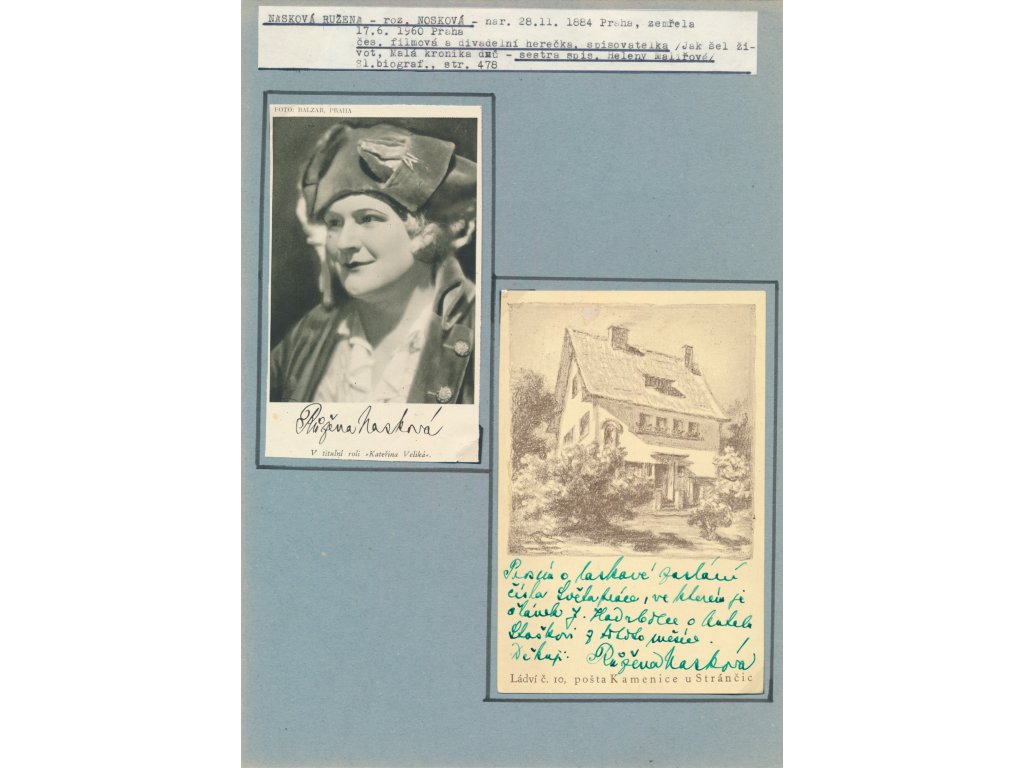 NASKOVÁ RUŽENA - roz. NOSKOVÁ - nar. 28.11. 1884 Praha, zemřela
17.6. 1960 Praha
čes. filmová a divadelní herečka, spisovatelka /Jak šel ži-
vot, Malá kronika dnů - sestra spis. Heleny Malířové/
Sl.biograf., str. 478
FOTO: BALZAR, PRAHA
Růžena Nasková
V titulní roli »Kateřina Veliká«.
Prosím o laskavé zaslání
čísla Světa práce, ve kterém je
článek J. o Antalu
Staškovi z tohoto měsíce.
Děkuji. Růžena Nasková
Ládví č. 10, pošta Kamenice u Stránčic